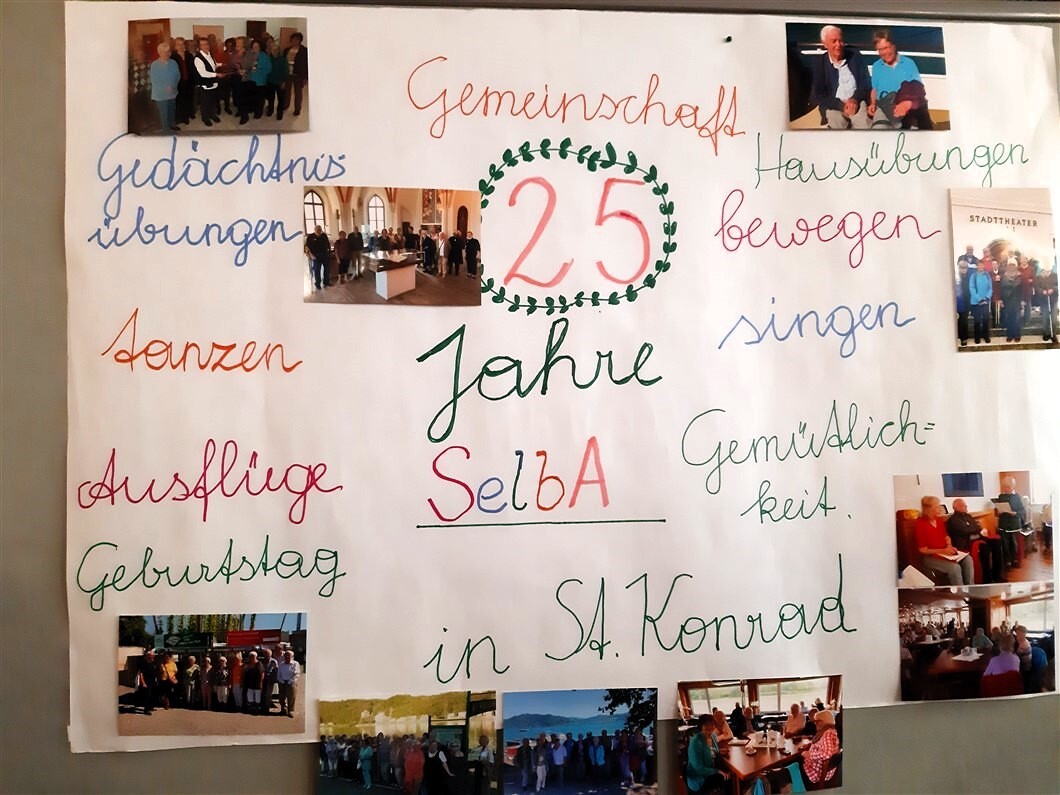 Gemeinschaft
Gedächtnis-
übungen
tanzen
Ausflüge
Geburtstag
25
Jahre
SelbA
in St. Konrad
Hausübungen
bewegen
singen
Gemütlich=
keit.
STADTTHEATER